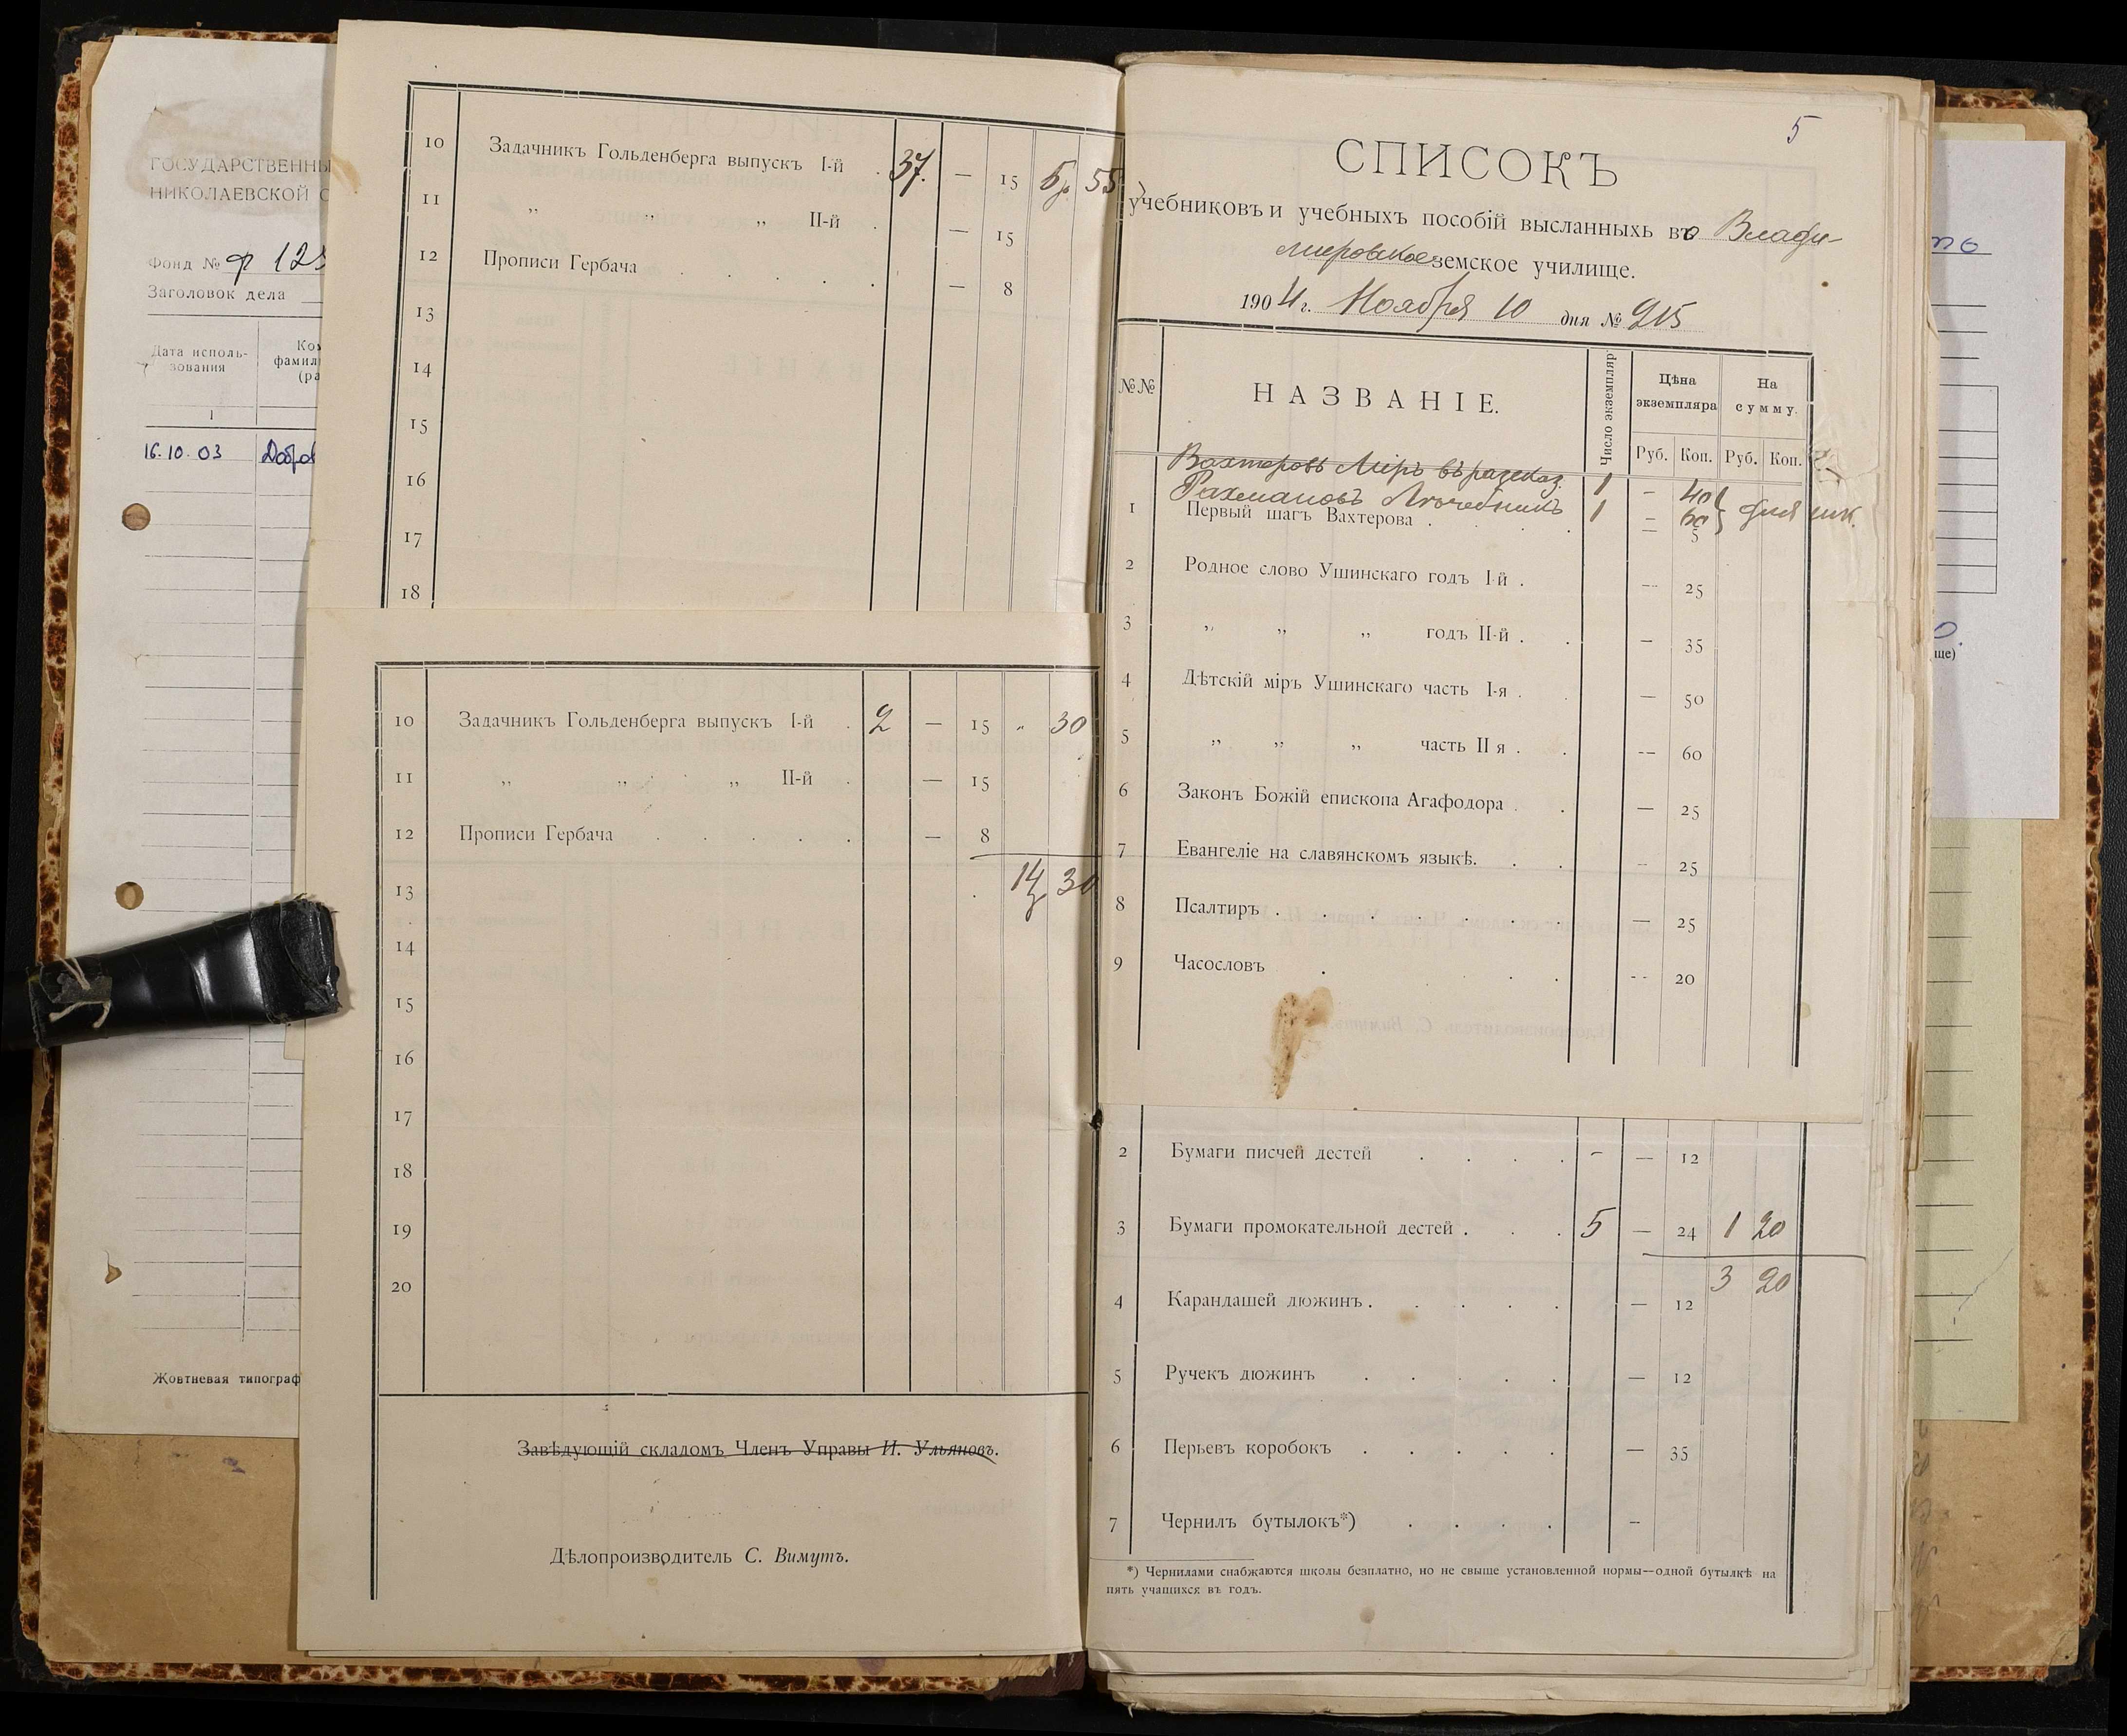 ГОСУДАРСТВЕННЫ
НИКОЛАЕВСКОЙ О
Фонд № ф 123
Заголовок дела
Дата исполь-
зования
фамил
1
16.10.03
Жовтневая типограф
10 Задачникъ Гольденберга выпускъ I-й . 37. — 15 5р 55
11 „ „ „ II-й . — 15
12 Прописи Гербача . . . . — 8
13
14
15
16
17
18
10 Задачникъ Гольденберга выпускъ I-й . 2 — 15 „ 30
11 „ „ „ II-й . — 15
12 Прописи Гербача . . . . . — 8
13 14р 30
14
15
16
17
18
19
20
Завѣдующій складомъ Членъ Управы И. Ульяновъ.
Дѣлопроизводитель С. Вимутъ.
5
СПИСОКЪ
учебниковъ и учебныхъ пособій высланныхь во Влади-
мировское земское училище.
1904 г. Ноября 10 дня № 215
№№ НАЗВАНІЕ. Число экземпляр. Цѣна экземпляра На сумму.
Руб. Коп. Руб. Коп.
Вахтеровъ Мiръ въ разсказ. 1 — 40
Рахмановъ Лѣчебникъ 1 — 60 } для шк.
1 Первый шагъ Вахтерова . . . . — 5
2 Родное слово Ушинскаго годъ I-й . — 25
3 „ „ „ годъ II-й . . — 35
4 Дѣтскій міръ Ушинскаго часть I-я . . — 50
5 „ „ „ часть II я . . — 60
6 Законъ Божій епископа Агафодора . . — 25
7 Евангеліе на славянскомъ языкѣ. . . — 25
8 Псалтирь . . . . . . . — 25
9 Часословъ . . . . — 20
2 Бумаги писчей дестей . . . . - — 12
3 Бумаги промокательной дестей . . . 5 — 24 1 20
3 20
4 Карандашей дюжинъ . . . . . — 12
5 Ручекъ дюжинъ . . . . . — 12
6 Перьевъ коробокъ . . . . . — 35
7 Чернилъ бутылокъ*) . . . . —
*) Чернилами снабжаются школы безплатно, но не свыше установленной нормы—одной бутылкѣ на
пять учащихся въ годъ.